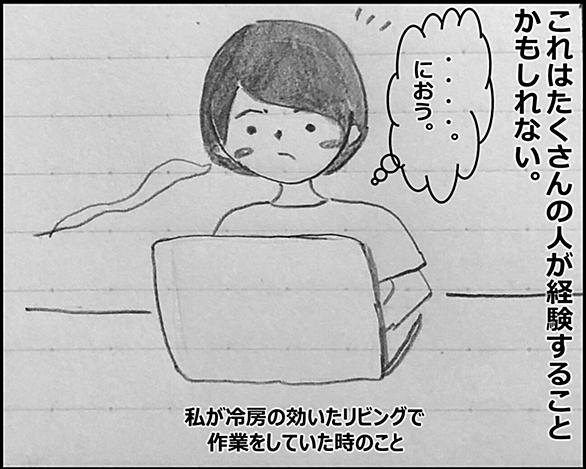 これはたくさんの人が経験すること
かもしれない。
・・・・・。
におう。
私が冷房の効いたリビングで
作業をしていた時のこと